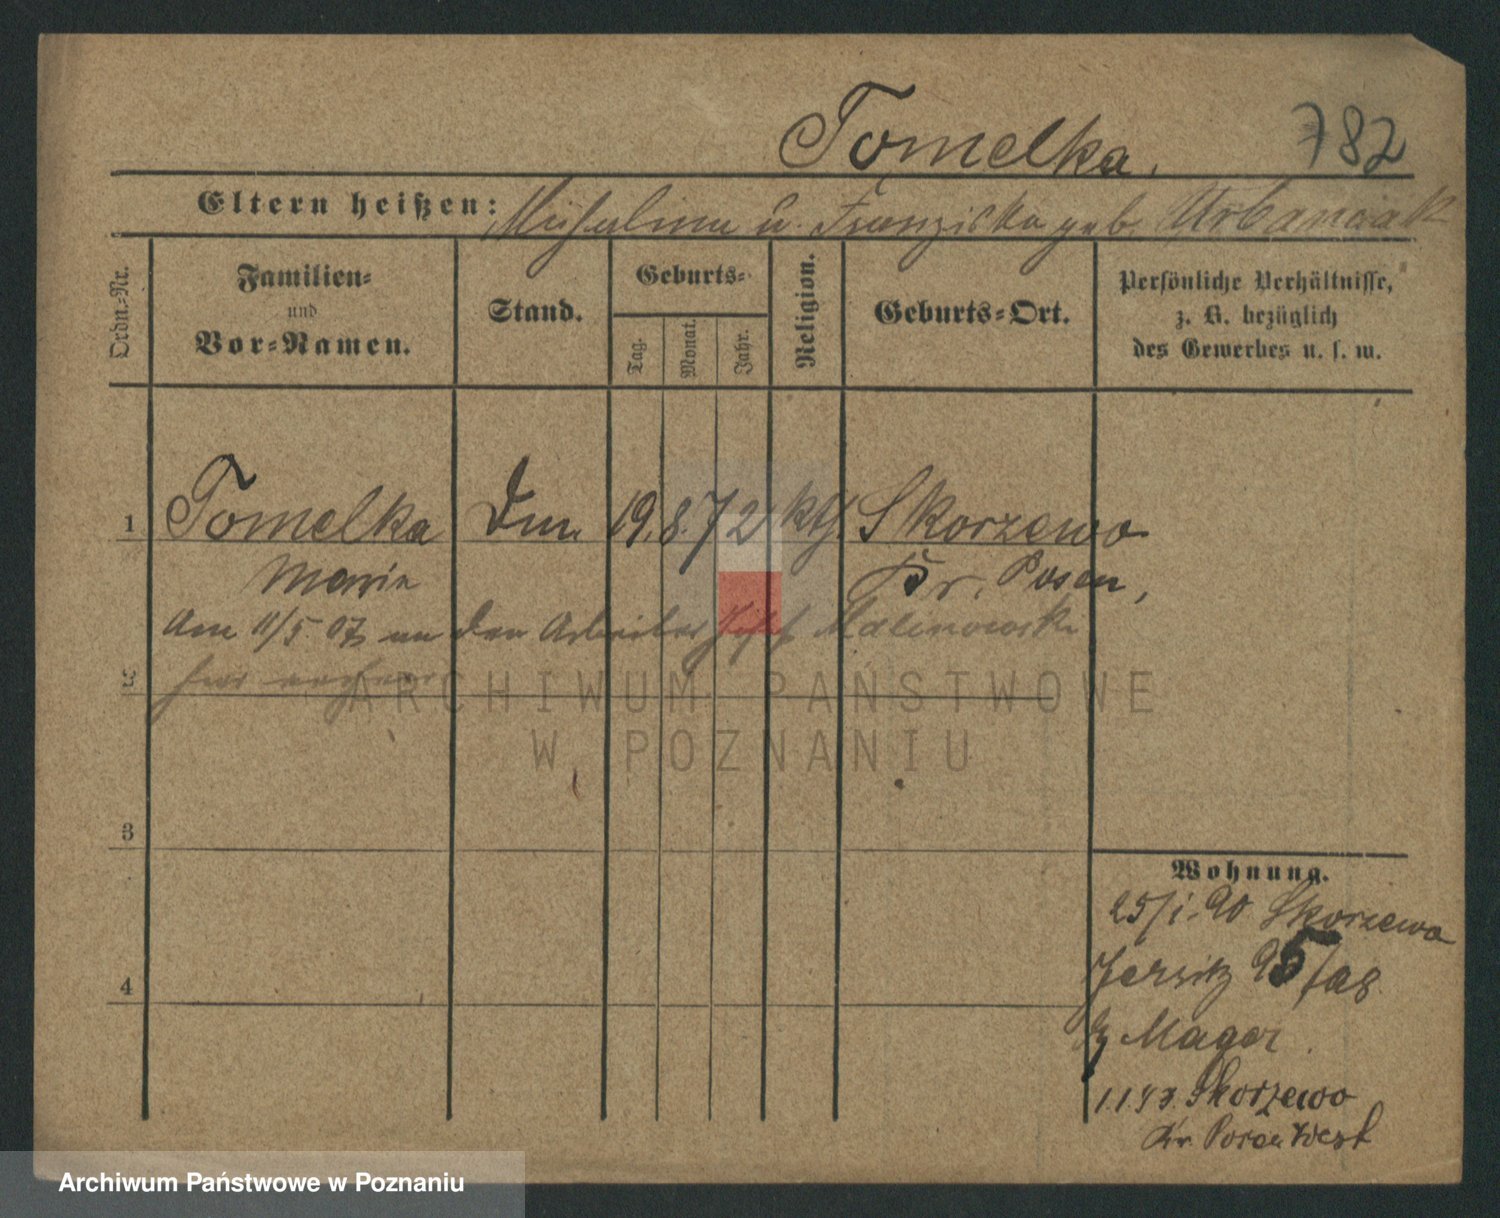 Tomelka. 782
Eltern heißen: u. Franziska geb. Urbaniak
Ordn.-Nr.
Familien-
und
Vor-Namen.
Stand.
Geburts-
Tag.
Monat.
Jahr.
Religion.
Geburts-Ort.
Persönliche Verhältnisse,
z. B. bezüglich
des Gewerbes u. s. w.
1 Tomelka 19. 8. 72 kth. Skorzewo
Marie Kr. Posen,
Am 11/5 07 an den Arbeiter Josef Malinowski
2 hier
3
4
Wohnung.
25/1. 90 Skorzewo
Jersitz 95/a8
Mager
1.1.93. Skorzewo
Kr. Posen West
ARCHIWUM PAŃSTWOWE
W POZNANIU
Archiwum Państwowe w Poznaniu